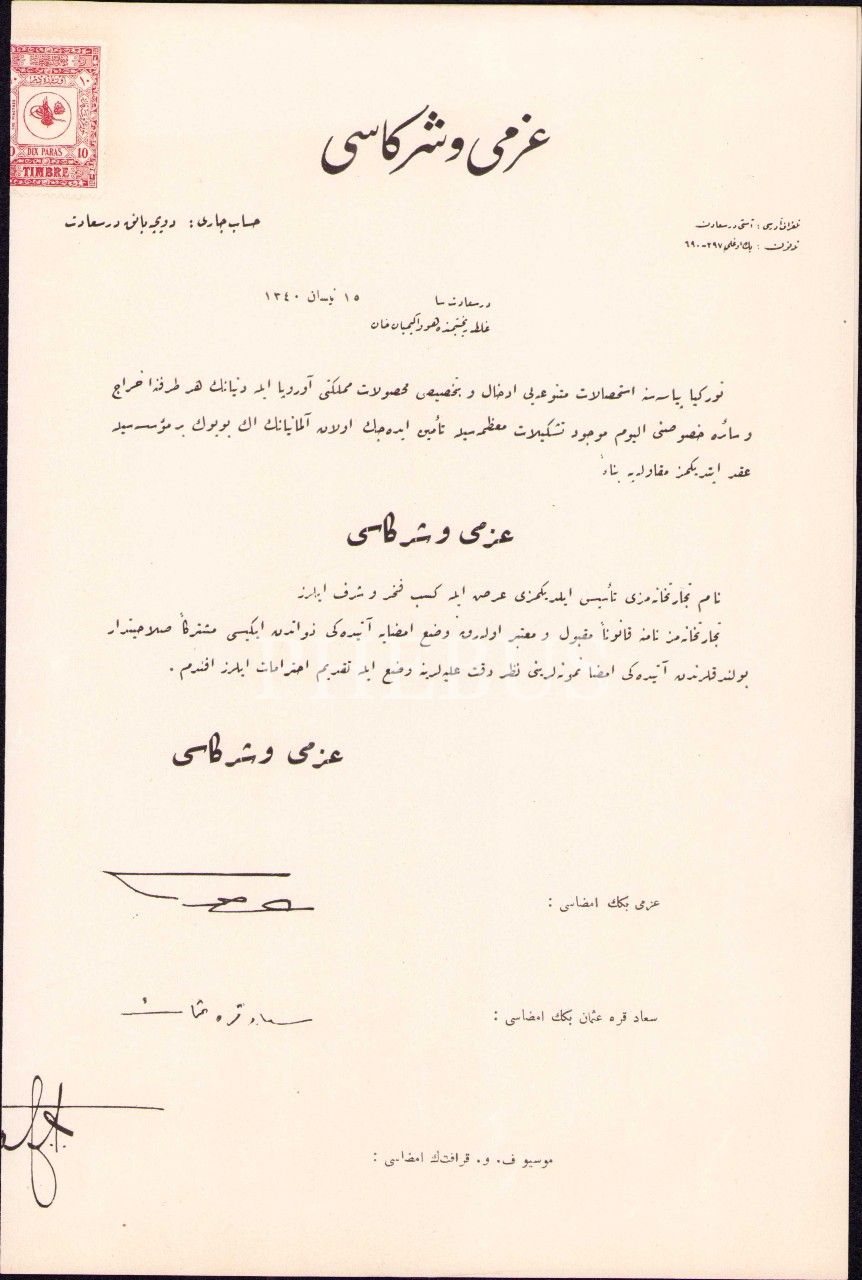 DIX PARAS
10
TIMBRE
عزمی و شرکاسی
حساب جاری : دویچه بانق درسعادت
تلغراف آدرسی : آستی درسعادت
تلفون : بك اوغلی ٢٩٧-٦٩٠
درسعادت
١٥ نیسان ١٣٤٠
غلطه خان
تورکیا پیاسه سنه استحصالات متنوعه یی ادخال و بتخصیص محصولات مملکتی آوروپا ایله دنیانك هر طرفنه اخراج
و سائره خصوصنی الیوم موجود تشکیلات معظمه سیله تأمین ایده جك اولان آلمانیانك اك بویوك بر مؤسسه سیله
عقد ایتدیکمز مقاوله یه بناءً
عزمی و شرکاسی
نام تجارتخانه مزی تأسیس ایلدیکمزی عرض ایله کسب فخر و شرف ایلرز
تجارتخانه مز نامنه قانوناً مقبول و معتبر اوله رق وضع امضایه آتیده کی ذواتدن ایکیسی مشترکاً صلاحیتدار
بولندقلرندن آتیده کی امضا نمونه لرینی نظر دقت علیه لرینه وضع ایله تقدیم احترامات ایلرز افندم .
عزمی و شرکاسی
عزمی بكك امضاسی :
سعاد قره عثمان بكك امضاسی :
سعاد قره عثمان
موسیو ف . و . قرافتك امضاسی :